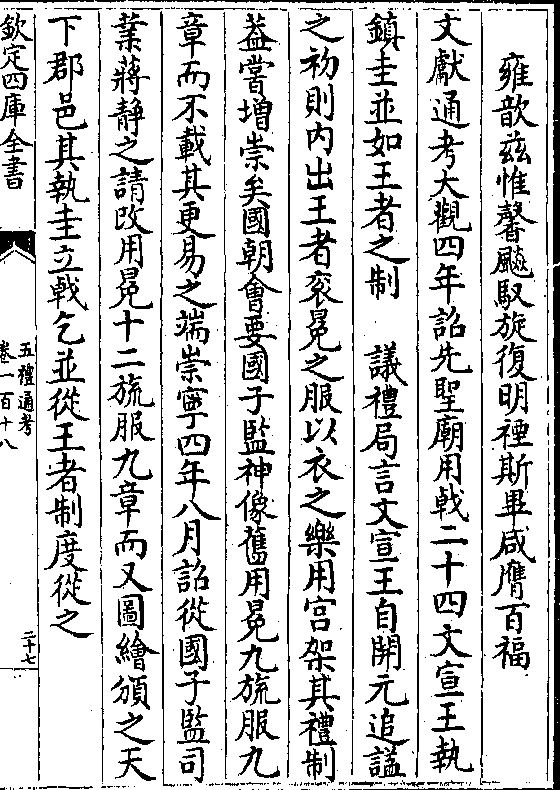 雍歆兹惟馨飈馭旋復明禋斯畢咸膺百福
文獻通考大觀四年詔先聖廟用戟二十四文宣王執
鎮圭並如王者之制　議禮局言文宣王自開元追諡
之初則内出王者衮冕之服以衣之樂用宫架其禮制
葢嘗增崇矣國朝會要國子監神像舊用冕九旒服九
章而不載其更易之端崇寧四年八月詔從國子監司
業蔣静之請改用冕十二旒服九章而又圖繪頒之天
下郡邑其執圭立戟乞並從王者制度從之
欽定四庫全書
五禮通考
卷一百十八
二十七